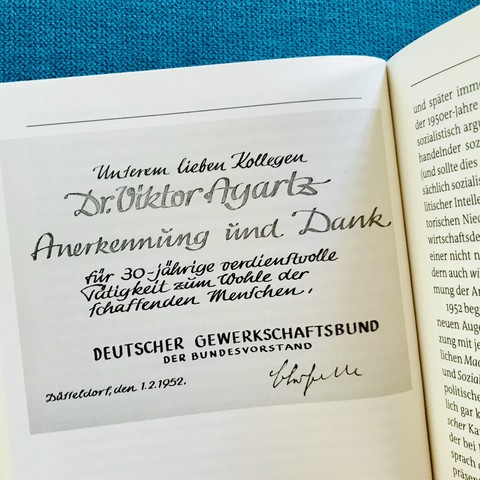 Unserem lieben Kollegen
Dr. Viktor Agartz
Anerkennung und Dank
für 30-jährige verdienstvolle
Tätigkeit zum Wohle der
schaffenden Menschen.
DEUTSCHER GEWERKSCHAFTSBUND
DER BUNDESVORSTAND
Düsseldorf, den 1.2.1952.
und später imme
der 1950er-Jahre
sozialistisch argu
handelnder soz
(und sollte dies
sächlich sozialis
litischer Intelle
torischen Nied
wirtschaftsde
einer nicht n
dern auch wi
mung der Ar
1952 beg
neuen Auge
zung mit je
lichen Mac
und Sozial
politische
lich gar k
scher Ka
der bei
sprach d
präsen